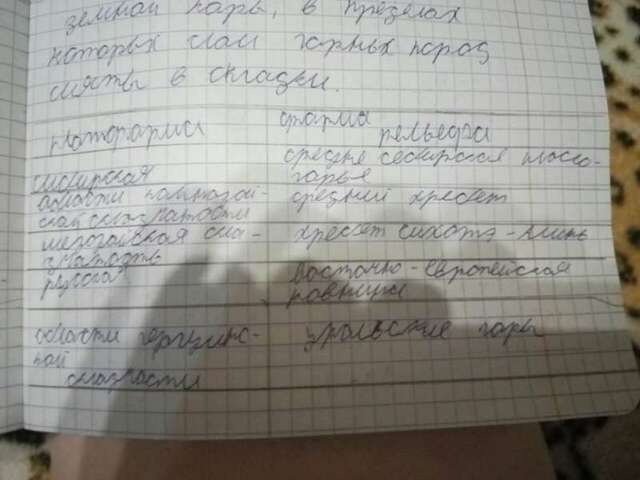 земной коры, в пределах
которых слои горных пород
смяты в складки.
платформа форма рельефа
сибирская средне сибирское плоско-
горье
области кайнозой-
ской складчатости средний хребет
мезозойская скла-
дчатость хребет сихотэ-алинь
русская восточно-европейская
равнина
области герцинс-
кой уральские горы
складчатости